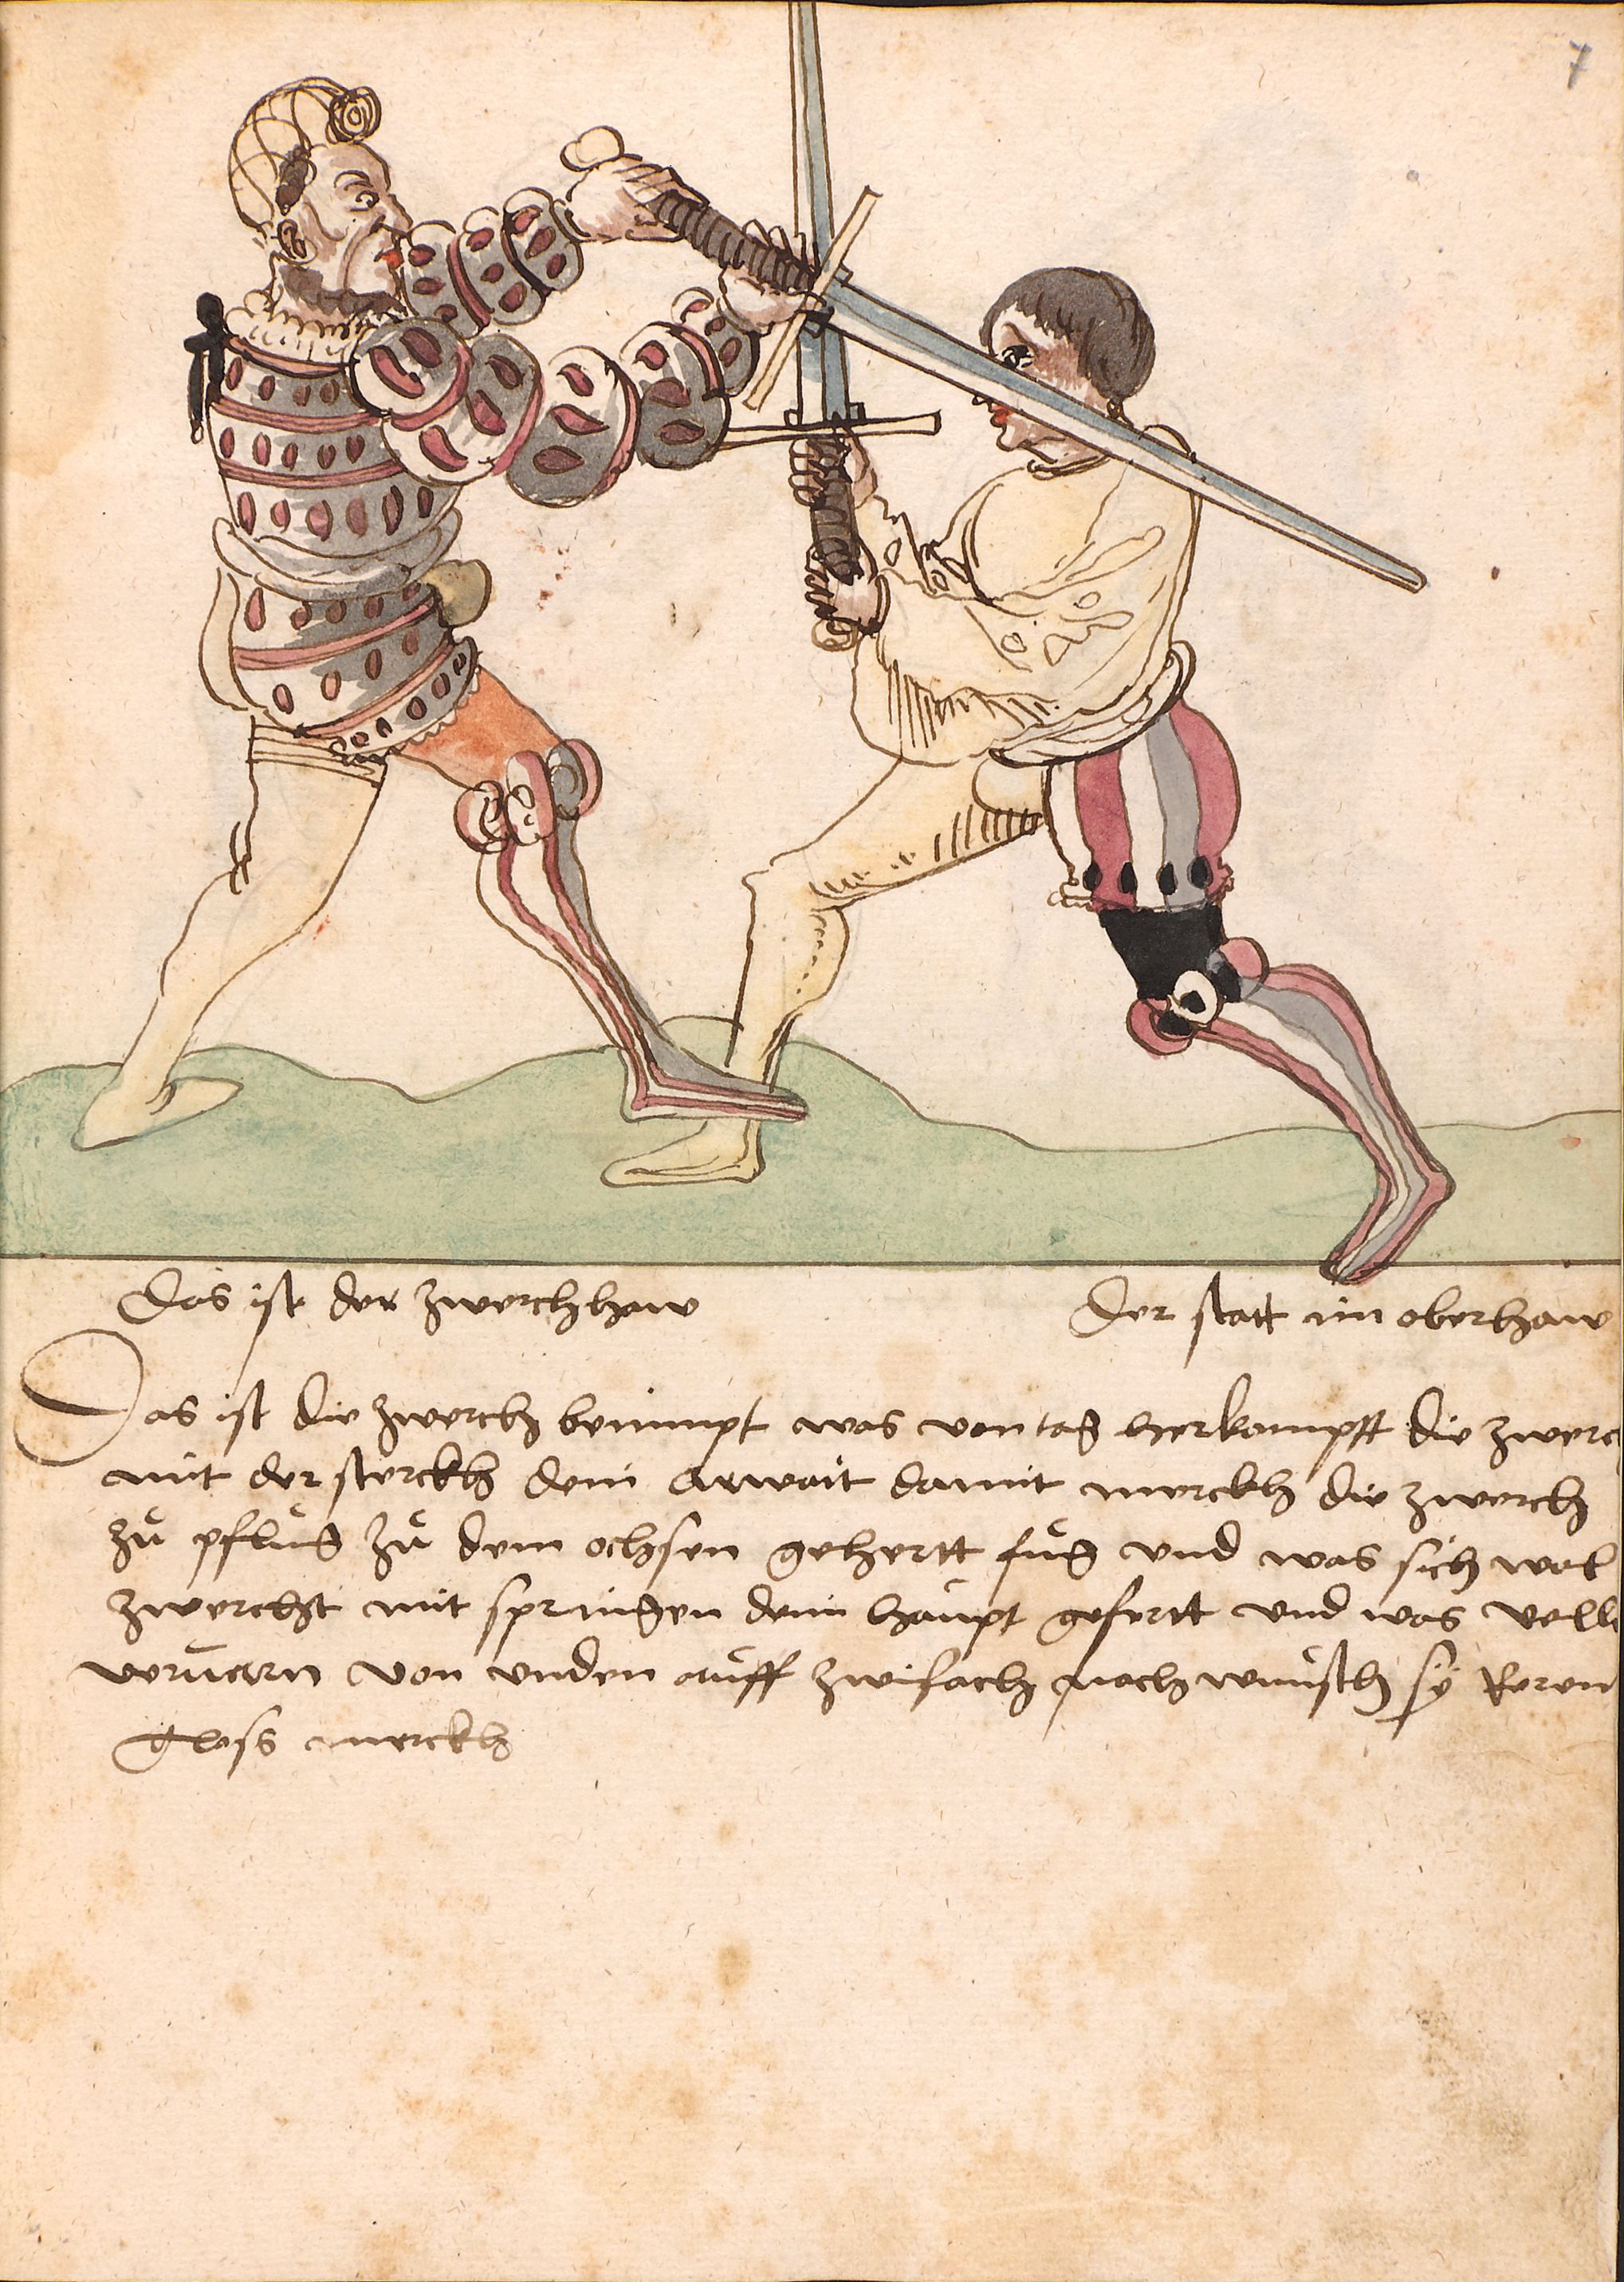 7
Das ist der zwerchhaw
Der statt im oberhaw
Das ist die zwerch benimpt was von tag herkompt die zwerc
mit der sterckh dein arwait damit merckh die zwerch
zů pflůg zů dem ochsen gehertt fůg und was sich wol
zwercht mit springen dem haupt gefertt und was
von unden auff zwifach nach wunsch sÿ
Gloss merckh